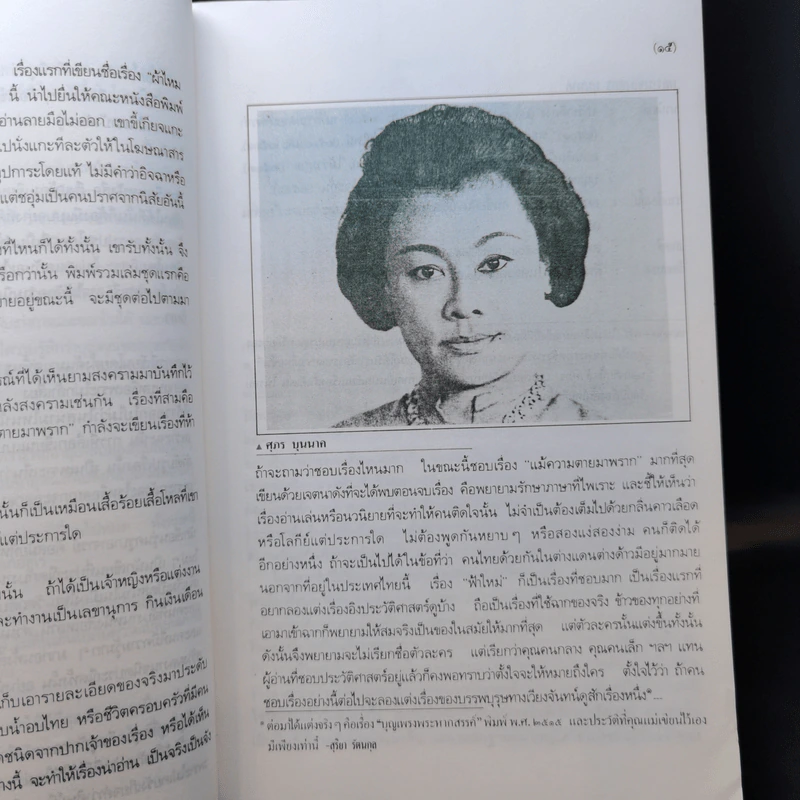 เรื่องแรกที่เขียนชื่อเรื่อง "ผ้าไหม
นี้ นำไปยื่นให้คณะหนังสือพิมพ์
อ่านลายมือไม่ออก เขาขี้เกียจแกะ
ไปนั่งแกะทีละตัวให้ในโฆษณาสาร
อุปการะโดยแท้ ไม่มีคำว่าอิจฉาหรือ
แต่ชอุ่มเป็นคนปราศจากนิสัยอันนี้
ที่ไหนก็ได้ทั้งนั้น เขารับทั้งนั้น จึง
รือกว่านั้น พิมพ์รวมเล่มชุดแรกคือ
ายอยู่ขณะนี้ จะมีชุดต่อไปตามมา
รณ์ที่ได้เห็นยามสงครามมาบันทึกไว้
าลังสงครามเช่นกัน เรื่องที่สามคือ
ตายมาพราก" กำลังจะเขียนเรื่องที่ห้า
นั้นก็เป็นเหมือนเสื้อร้อยเสื้อโหลที่เขา
แต่ประการใด
นั้น ถ้าได้เป็นเจ้าหญิงหรือแต่งงาน
ละทำงานเป็นเลขานุการ กินเงินเดือน
เก็บเอารายละเอียดของจริงมาประดับ
บน้ำอบไทย หรือชีวิตครอบครัวที่มีคน
ดชนิดจากปากเจ้าของเรื่อง หรือได้เห็น
างนี้ จะทำให้เรื่องน่าอ่าน เป็นจริงเป็นจัง
(๑๕)
▲ ศุภร บุนนาค
ถ้าจะถามว่าชอบเรื่องไหนมาก ในขณะนี้ชอบเรื่อง "แม้ความตายมาพราก" มากที่สุด
เขียนด้วยเจตนาดังที่จะได้พบตอนจบเรื่อง คือพยายามรักษาภาษาที่ไพเราะ และชี้ให้เห็นว่า
เรื่องอ่านเล่นหรือนวนิยายที่จะทำให้คนติดใจนั้น ไม่จำเป็นต้องเต็มไปด้วยกลิ่นคาวเลือด
หรือโลกีย์แต่ประการใด ไม่ต้องพูดกันหยาบ ๆ หรือสองแง่สองง่าม คนก็ติดได้
อีกอย่างหนึ่ง ถ้าจะเป็นไปได้ในข้อที่ว่า คนไทยด้วยกันในต่างแดนต่างด้าวมีอยู่มากมาย
นอกจากที่อยู่ในประเทศไทยนี้ เรื่อง "ฟ้าใหม่" ก็เป็นเรื่องที่ชอบมาก เป็นเรื่องแรกที่
อยากลองแต่งเรื่องอิงประวัติศาสตร์ดูบ้าง ถือเป็นเรื่องที่ใช้ฉากของจริง ข้าวของทุกอย่างที่
เอามาเข้าฉากก็พยายามให้สมจริงเป็นของในสมัยให้มากที่สุด แต่ตัวละครนั้นแต่งขึ้นทั้งนั้น
ดังนั้นจึงพยายามจะไม่เรียกชื่อตัวละคร แต่เรียกว่าคุณคนกลาง คุณคนเล็ก ฯลฯ แทน
ผู้อ่านที่ชอบประวัติศาสตร์อยู่แล้วก็คงพอทราบว่าตั้งใจจะให้หมายถึงใคร ตั้งใจไว้ว่า ถ้าคน
ชอบเรื่องอย่างนี้ต่อไปจะลองแต่งเรื่องของบรรพบุรุษทางเวียงจันทน์ดูสักเรื่องหนึ่ง*...
* ต่อมาได้แต่งจริง ๆ คือเรื่อง "บุญเพรงพระหากสรรค์" พิมพ์ พ.ศ. ๒๕๑๕ และประวัติที่คุณแม่เขียนไว้เอง
มีเพียงเท่านี้ -สุริยา รัตนกุล